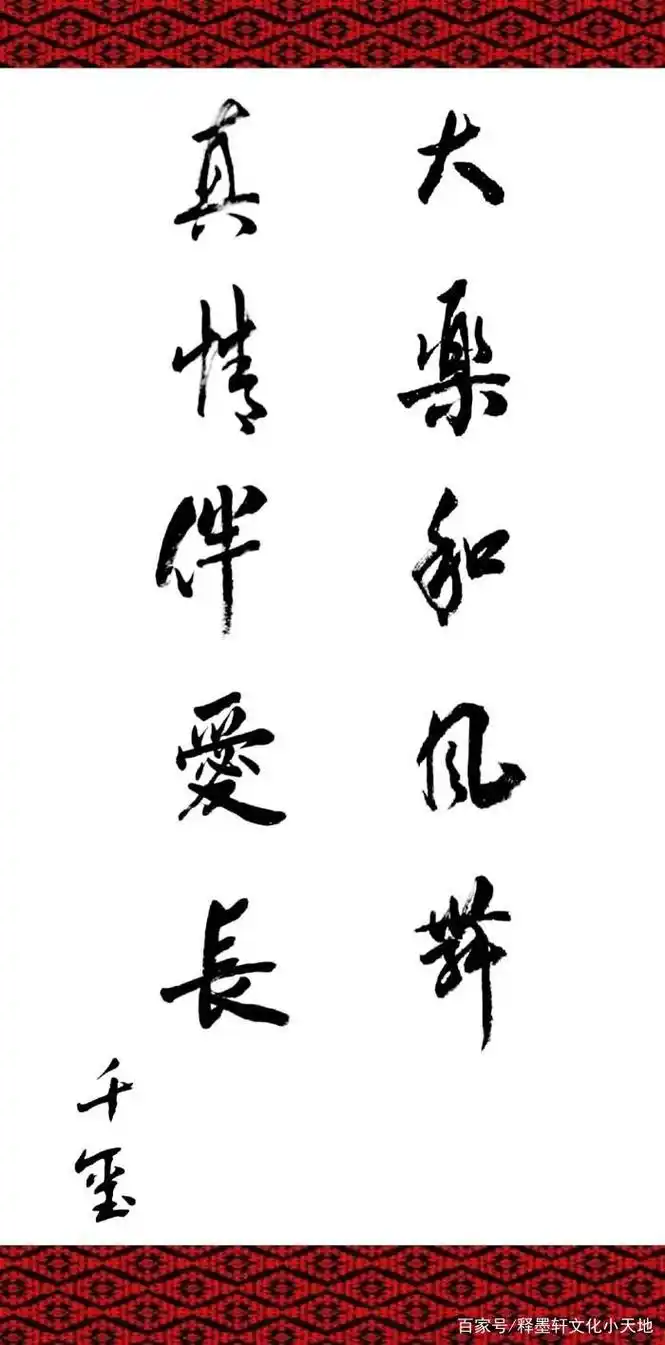 大樂和風舞
真情伴愛長
千玺
百家号/释墨轩文化小天地